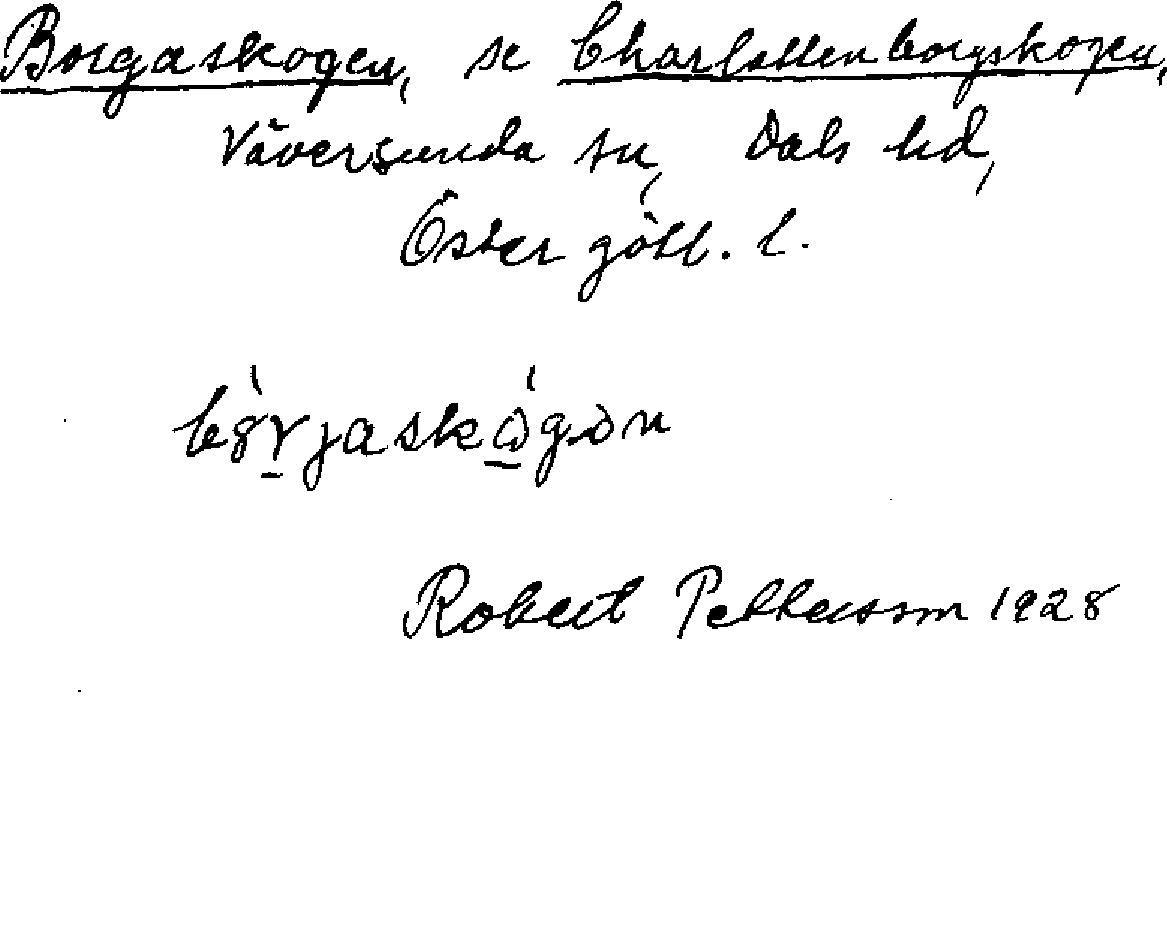 Borgaskogen, se Charlottenborgskogen,
Väversunda sn, Dals hd,
Östergötl. l.
bȣ̀ɤ̠jaskǫ́gən
Robert Pettersson 1928